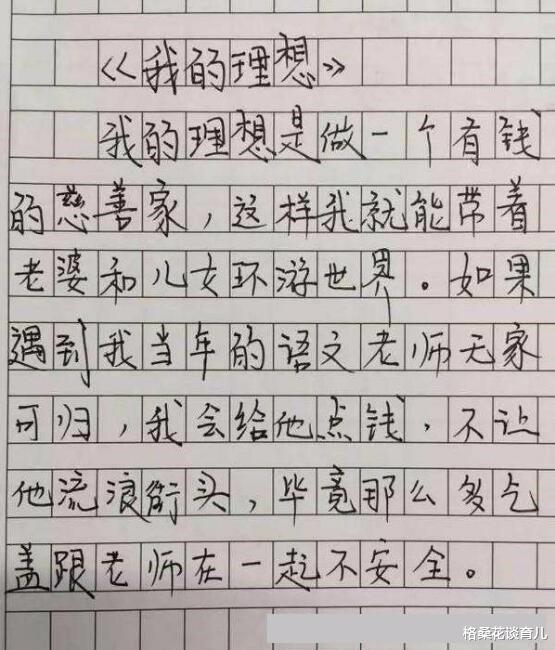 《我的理想》
我的理想是做一个有钱
的慈善家，这样我就能带着
老婆和儿女环游世界。如果
遇到我当年的语文老师无家
可归，我会给他点钱，不让
他流浪街头，毕竟那么多乞
盖跟老师在一起不安全。
格桑花谈育儿